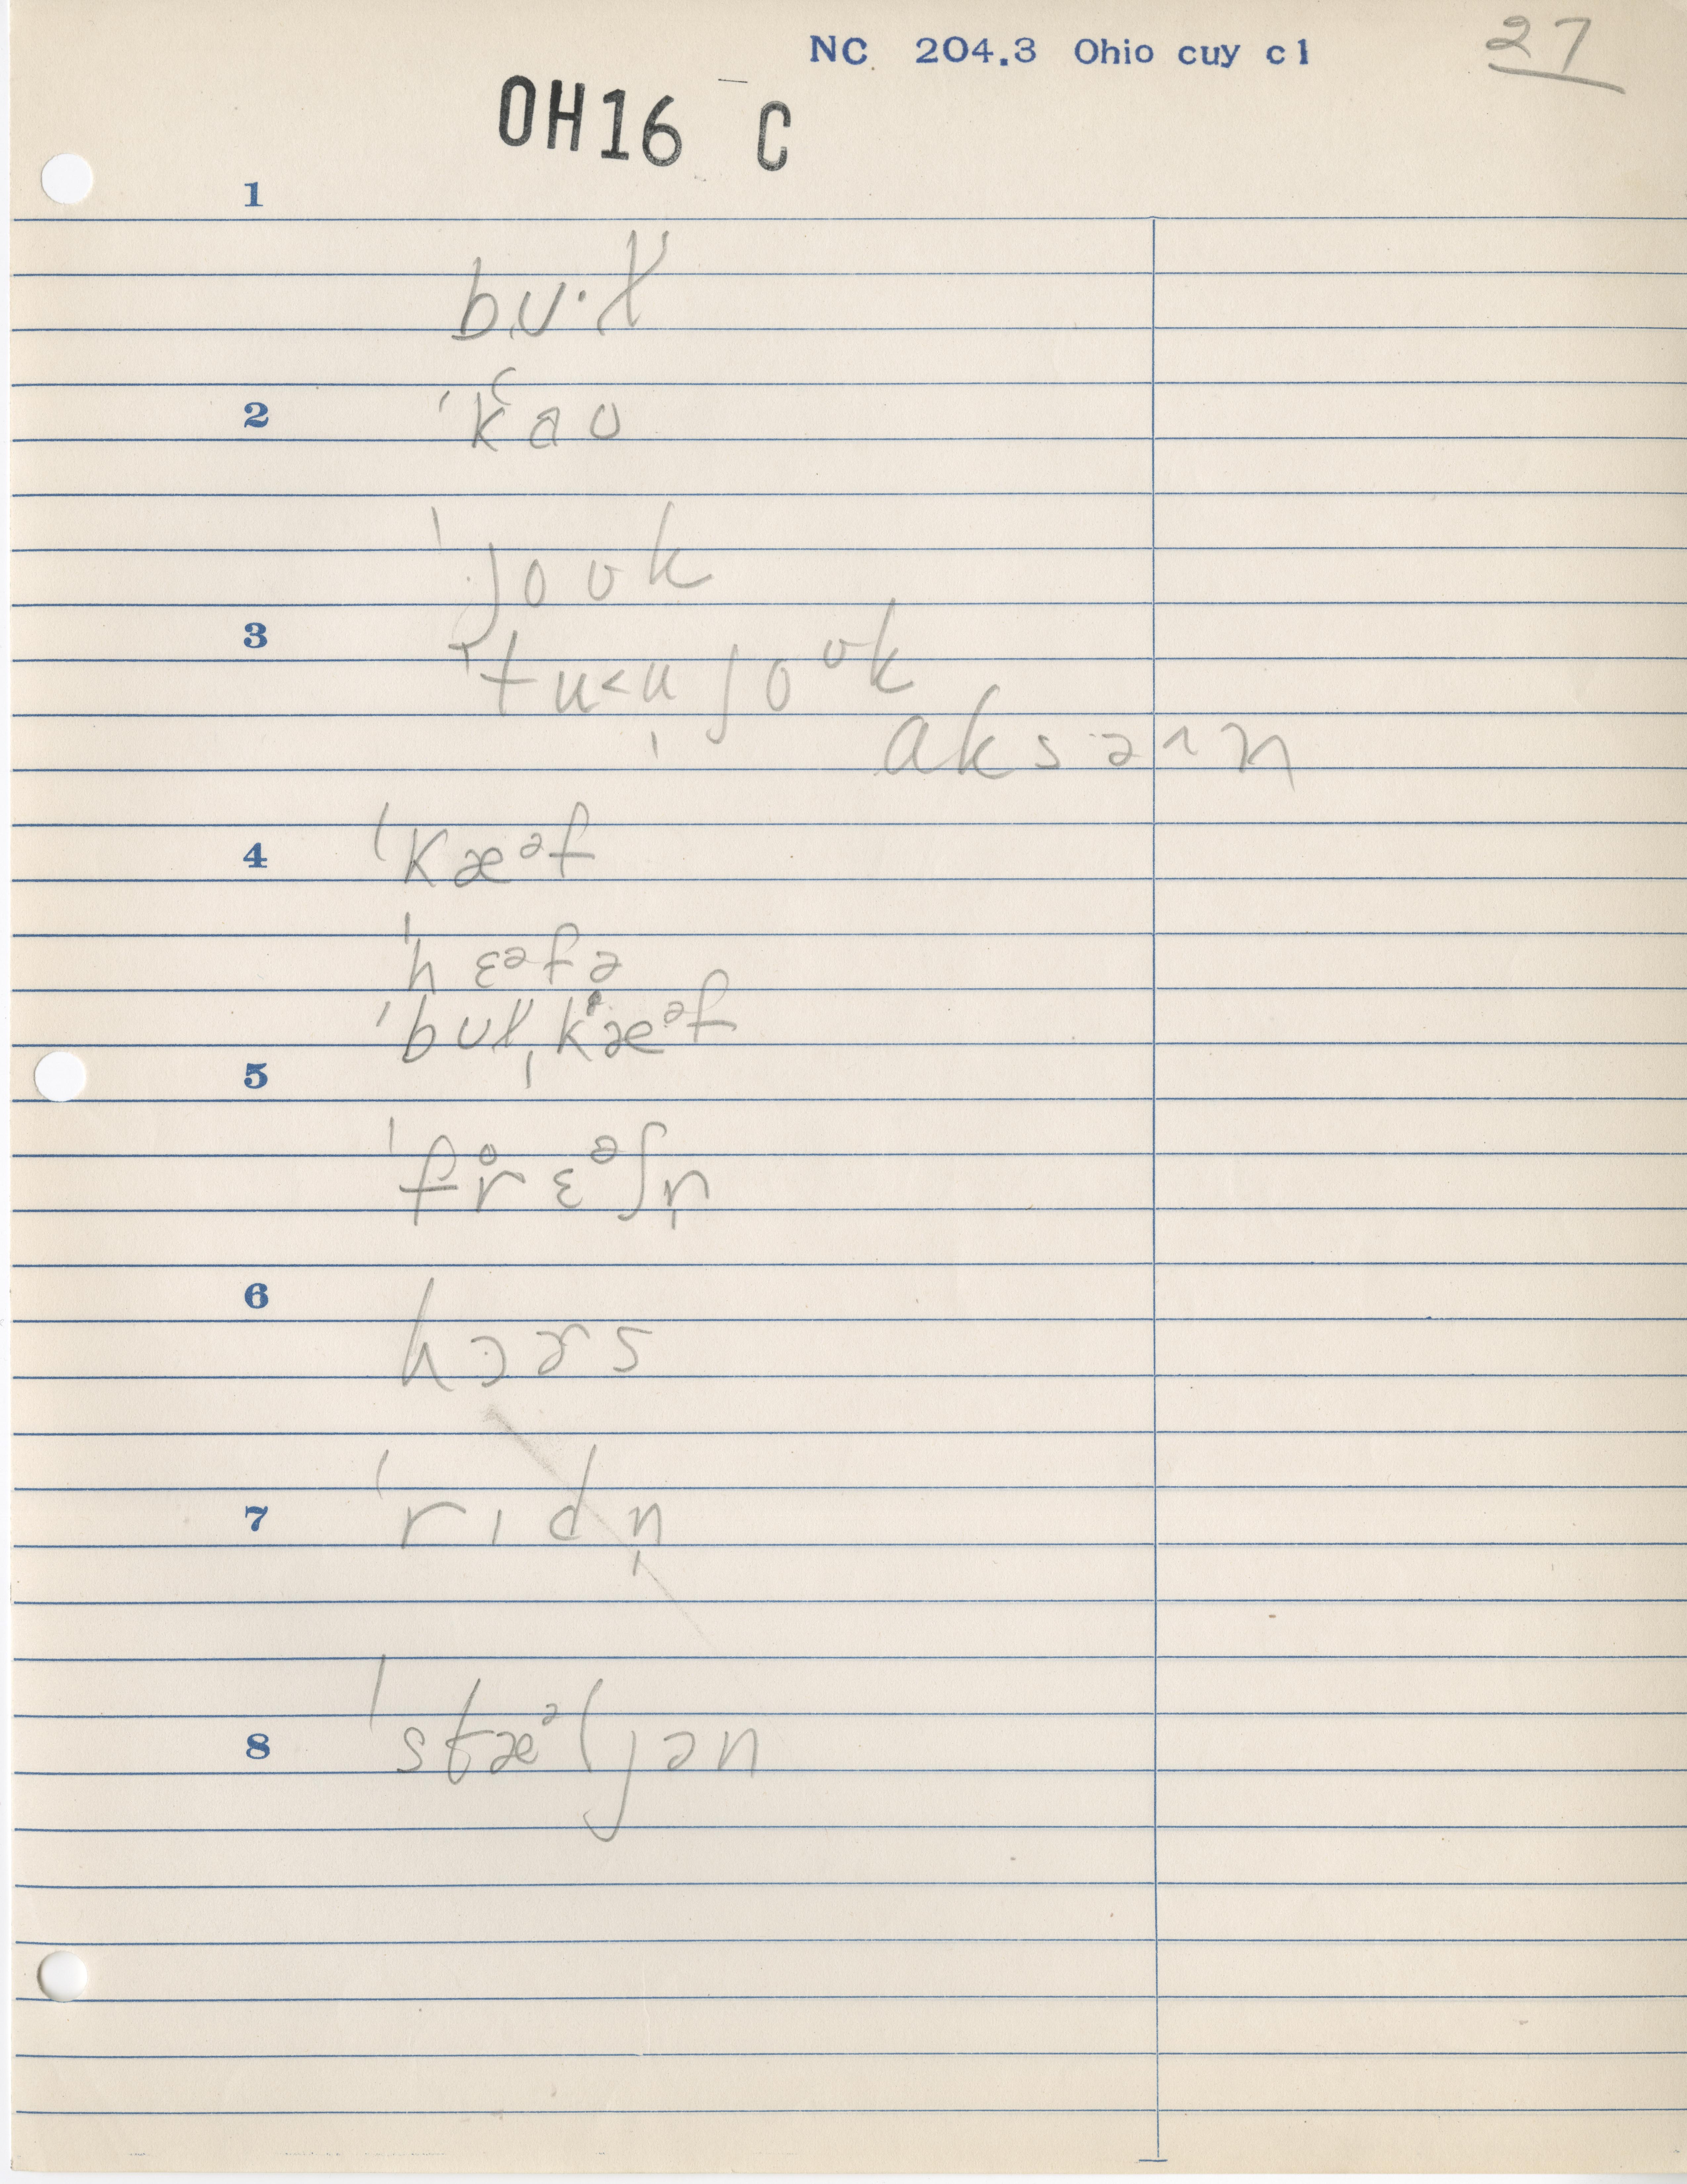 NC 204.3 Ohio cuy c1
27
OH16 C
1
bʊ·ɫ
2 ˈkʻaʊ
ˈjoʊk
3
ˈtu˂u ˌjoᶷk
aksə^n
4 ˈkæᵊf
ˈhɛᵊfə
ˈbʊɫˌkæᵊf
5
ˈfr̥ɛᵊʃn̩
6
hɔɚs
7 ˈrɪdn̩
8 ˈstæᵊljən